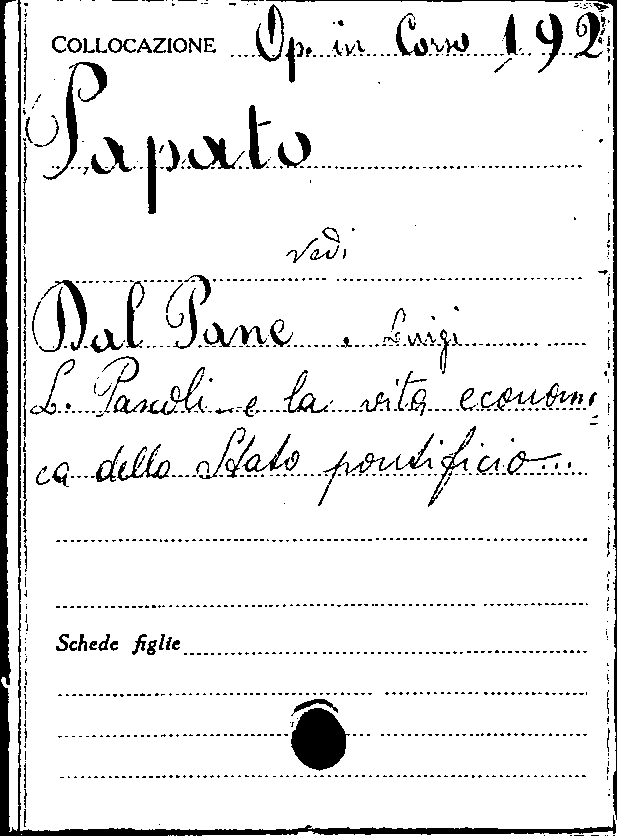 COLLOCAZIONE Op. in Corso 192
Papato
vedi
Dal Pane. Luigi
L. Pascoli e la vita economi=
ca dello Stato pontificio...
Schede figlie